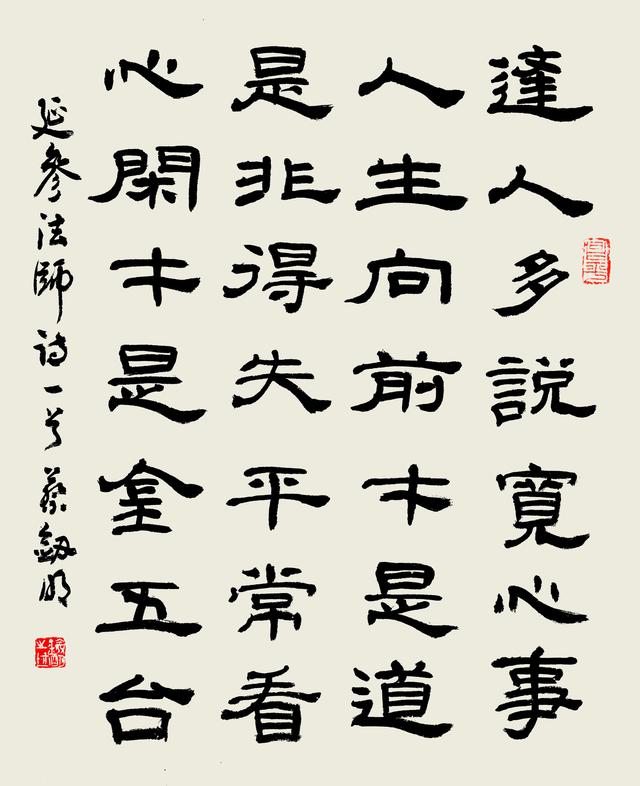 達人多說寬心事
人生向前才是道
是非得失平常看
心閑才是金五台
延參法師詩一首 蔡劍明